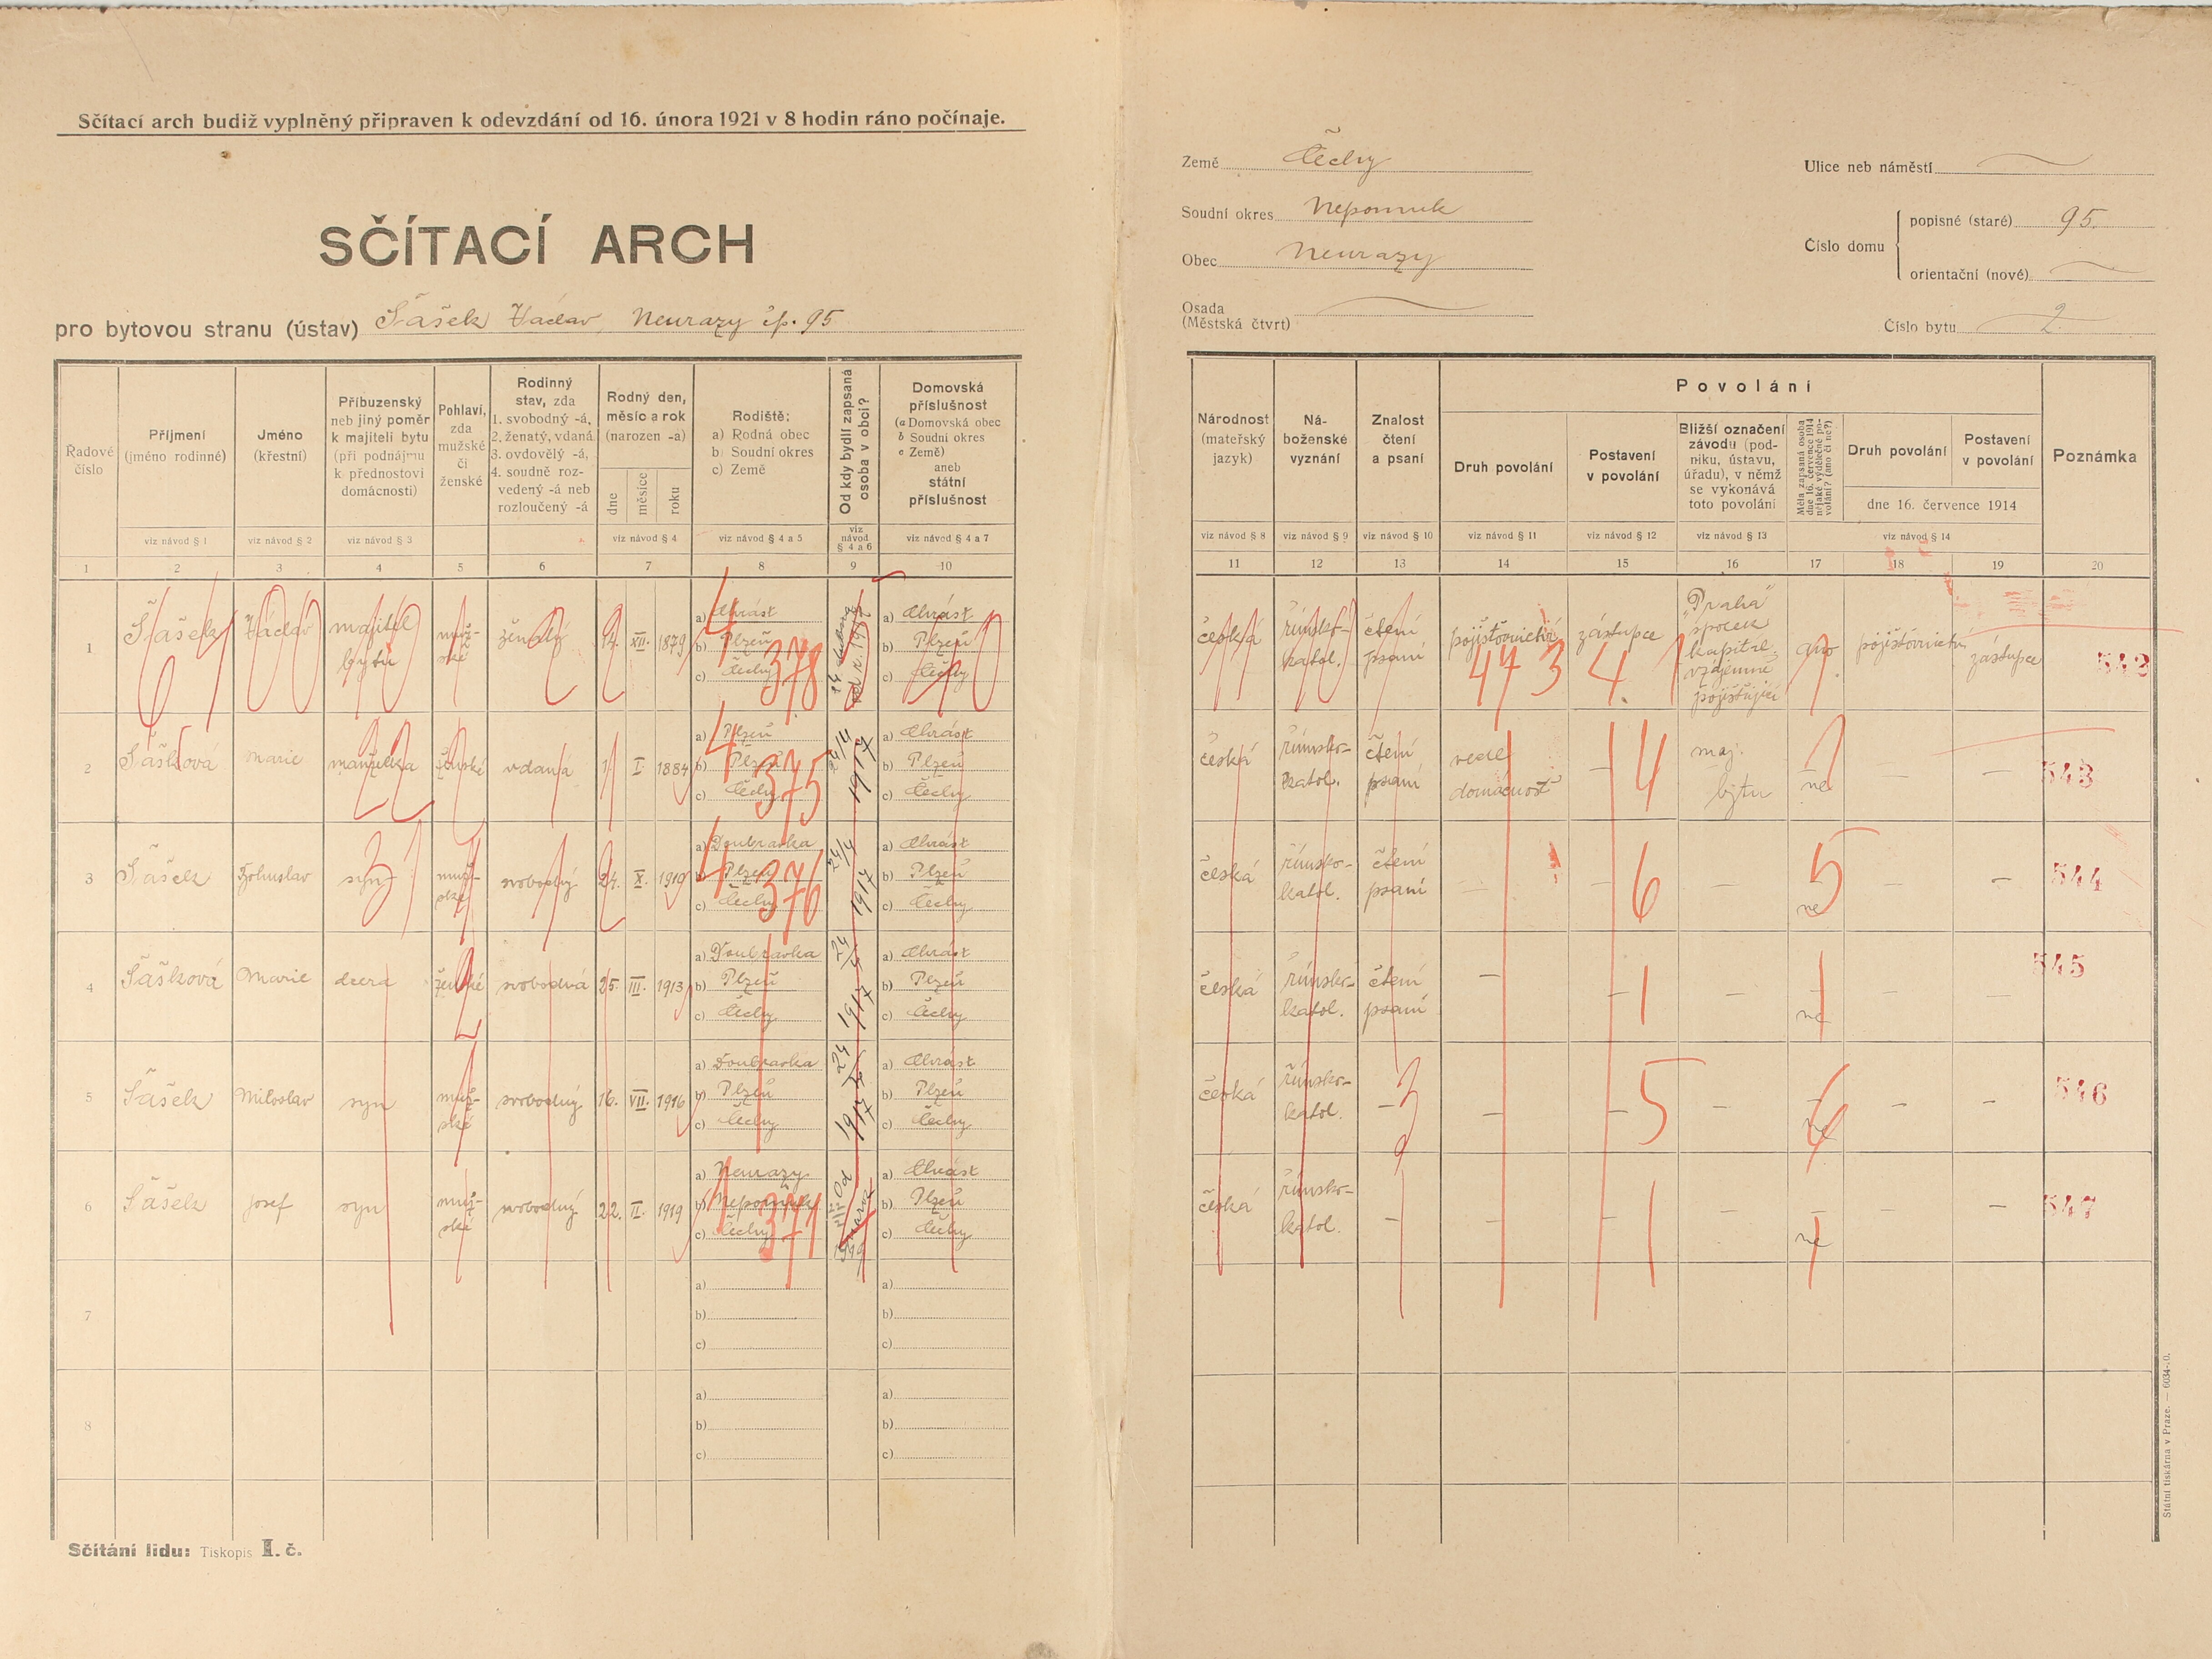 Sčítací arch budiž vyplněný připraven k odevzdání od 16. února 1921 v 8 hodin ráno počínaje.
SČÍTACÍ ARCH
pro bytovou stranu (ústav) Šašek Václav, Neurazy čp. 95
Země Čechy
Soudní okres Nepomuk
Obec Neurazy
Osada
(Městská čtvrt)
Ulice neb náměstí
Číslo domu
popisné (staré) 95.
orientační (nové)
Číslo bytu 2.
Řadové číslo
Příjmení (jméno rodinné)
Jméno (křestní)
Příbuzenský neb jiný poměr k majiteli bytu (při podnájmu k přednostovi domácnosti)
Pohlaví, zda mužské či ženské
Rodinný stav, zda 1. svobodný -á, 2. ženatý, vdaná 3. ovdovělý -á, 4. soudně rozvedený -á neb rozloučený -á
Rodný den, měsíc a rok (narozen -a)
dne měsíce roku
Rodiště:
a) Rodná obec
b) Soudní okres
c) Země
Od kdy bydlí zapsaná osoba v obci?
Domovská příslušnost
(a Domovská obec
b Soudní okres
c Země)
aneb státní příslušnost
Národnost (mateřský jazyk)
Náboženské vyznání
Znalost čtení a psaní
Povolání
Druh povolání
Postavení v povolání
Bližší označení závodu (podniku, ústavu, úřadu), v němž se vykonává toto povolání
Měla zapsaná osoba dne 16. července 1914 nějaké výdělečné povolání? (ano či ne?)
Druh povolání
Postavení v povolání
dne 16. července 1914
Poznámka
viz návod § 1 viz návod § 2 viz návod § 3 viz návod § 4 viz návod § 4 a 5 viz návod § 4 a 6 viz návod § 4 a 7
viz návod § 8 viz návod § 9 viz návod § 10 viz návod § 11 viz návod § 12 viz návod § 13 viz návod § 14
1 2 3 4 5 6 7 8 9 10 11 12 13 14 15 16 17 18 19 20
1 Šašek Václav majitel bytu mužské ženatý 14. XII. 1879
a) Chrást b) Plzeň c) Čechy 378
a) Chrást b) Plzeň c) Čechy
česká římsko-katol. čtení psaní pojišťovnictví zástupce "Praha" spolek kapitál. vzájemně pojišťující ano pojišťovnictví zástupce 542
473 4.
2 Šašková Marie manželka ženská vdaná 1 I 1884
a) Plzeň b) Plzeň c) Čechy 375
24/4 1917
a) Chrást b) Plzeň c) Čechy
česká římsko-katol. čtení psaní vede domácnost — maj. bytu ne — — 543
3 Šašek Bohuslav syn mužské svobodný 24. X. 1910
a) Doubravka b) Plzeň c) Čechy 376
24/4 1917
a) Chrást b) Plzeň c) Čechy
česká římsko-katol. čtení psaní — — — ne — — 544
4 Šašková Marie dcera ženské svobodná 25. III. 1913
a) Doubravka b) Plzeň c) Čechy
24/4 1917
a) Chrást b) Plzeň c) Čechy
česká římsko-katol. čtení psaní — — — ne — — 545
5 Šašek Miloslav syn mužské svobodný 16. VII. 1916
a) Doubravka b) Plzeň c) Čechy
24/4 1917
a) Chrást b) Plzeň c) Čechy
česká římsko-katol. — — — — ne — — 546
6 Šašek Josef syn mužské svobodný 22. II. 1919
a) Neurazy b) Nepomuk c) Čechy 371
a) Chrást b) Plzeň c) Čechy
česká římsko-katol. — — — — ne — — 547
7
a)
b)
c)
a)
b)
c)
8
a)
b)
c)
a)
b)
c)
Sčítání lidu: Tiskopis I. č.
Státní tiskárna v Praze. — 6034-.0.